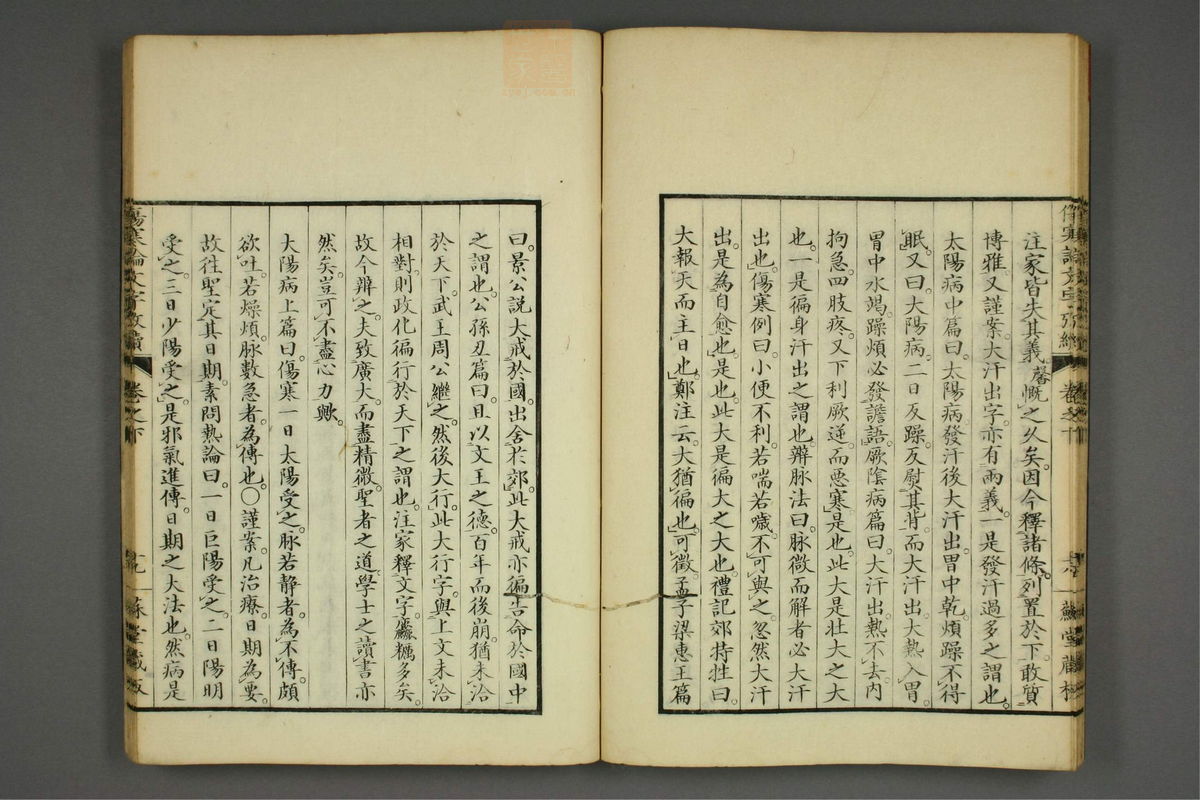 注家皆失其義馨慨之久矣因今釋諸條列置於下敢質
博雅又謹案大汗出字亦有兩義一是發汗過多之謂也
太陽病中篇曰太陽病發汗後大汗出胃中乾煩躁不得
眠又曰大陽病二日反躁反熨其背而大汗出大熱入胃
胃中水竭躁煩必發譫語厥陰病篇曰大汗出熱不去内
拘急四肢疼又下利厥逆而悪寒是也此大是壮大之大
也一是徧身汗出之謂也辨脉法曰脉微而解者必大汗
出也傷寒例曰小便不利若喘若噦不可與之忽然大汗
出是為自愈也是也此大是徧大之大也禮記郊特牲曰
大報天而主日也鄭注云大猶徧也可徵孟子梁惠王篇
曰景公説大戒於國出舍於郊此大戒亦徧告命於國中
之謂也公孫丑篇曰且以文王之德百年而後崩猶未洽
於天下武王周公繼之然後大行此大行字與上文未洽
相對則政化徧行於天下之謂也注家釋文字麤糲多矣
故今辨之夫致廣大而盡精微聖者之道學士之讀書亦
然矣豈可不盡心力歟
大陽病上篇曰傷寒一日太陽受之脉若静者為不傳頗
欲吐若燥煩脉數急者為傳也〇謹案凡治療日期為要
故往聖定其日期素問熱論曰一日巨陽受之二日陽明
受之三日少陽受之是邪氣進傳日期之大法也然病是
傷寒論文字攷續
卷之下